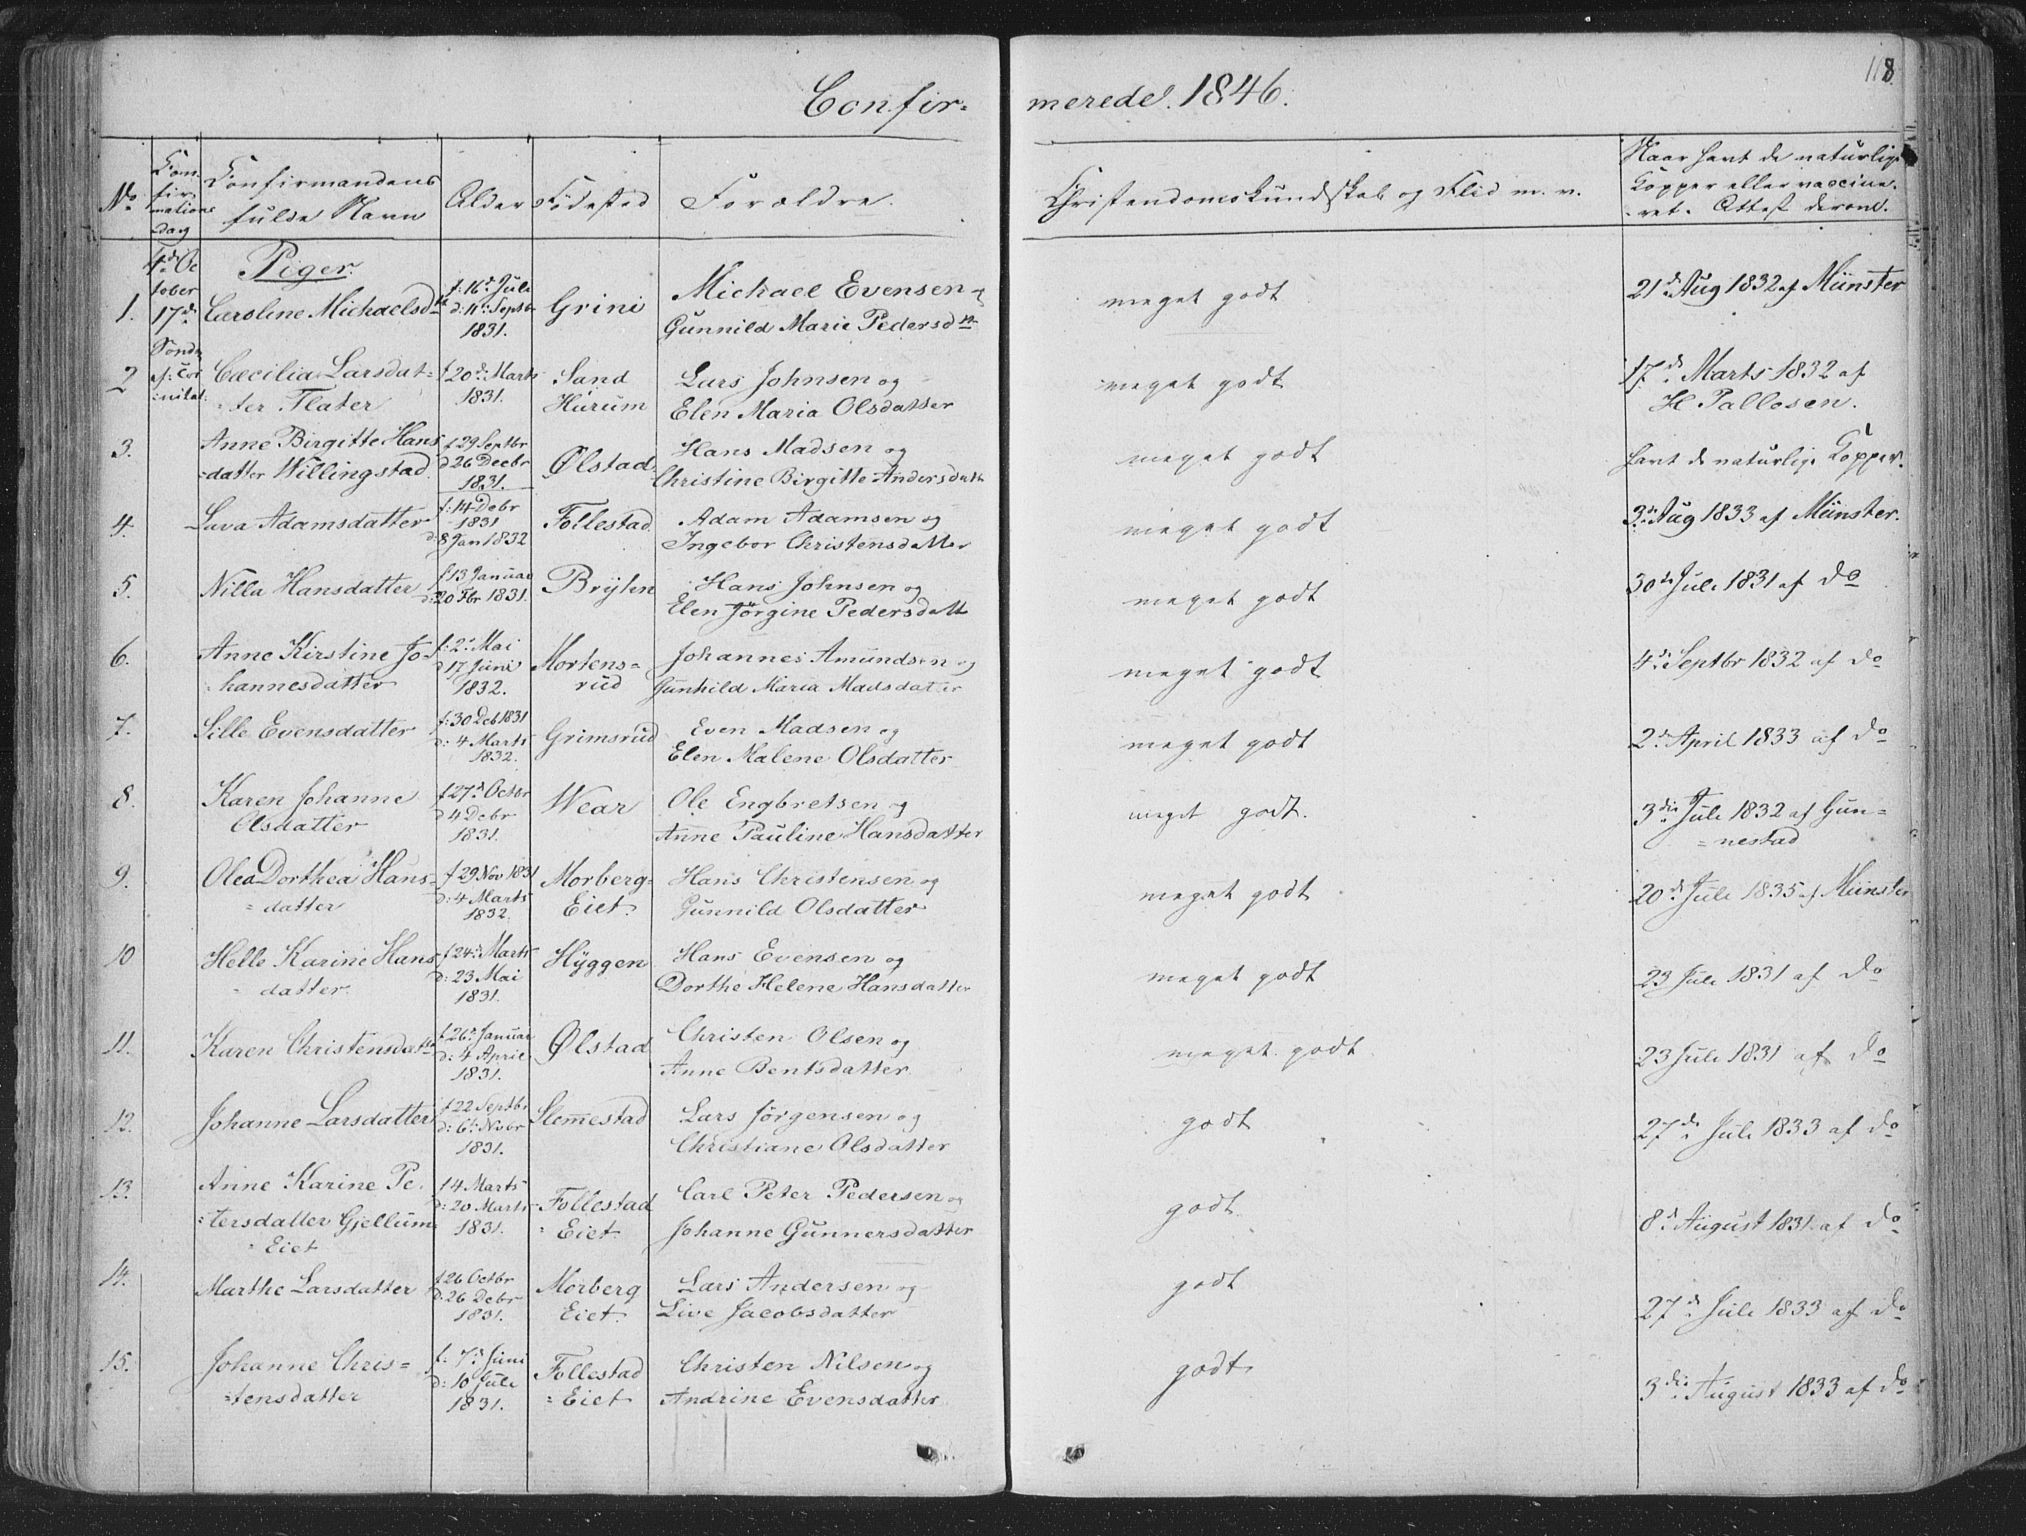 118
Confir= merede 1846.
No.
Con-
fir-
mations
dag
Confirmandens
fulde Navn
Alder
Fødested
Forældre.
Christendomskundskab og Flid m. v.
Naar havt de naturlige
Kopper eller vaccine-
ret. Attest derom.
4de Oc
tober
17de
Sønd.
ef: Tri
=nitat:
Piger.
1. Caroline Michaelsdtr
f: 16de Juli
d: 11te Septb
1831.
Grini
Michael Evensen og
Gunnild Marie Pedersdtr
meget godt
21de Aug 1832 af Münster
2 Cæcilia Larsdat=
=ter Flater
f 20de Marts
1831.
Sand
Hurum
Lars Johnsen og
Elen Maria Olsdatter
meget godt
17de Marts 1832 af
H Pallesen.
3. Anne Birgitte Hans
=datter Willingstad
f 29 Septbr
d 26 Decbr
1831.
Ølstad
Hans Madsen og
Christine Birgitte Andersdatt
meget godt
havt de naturlige Kopper.
4. Lava Adamsdatter
f: 14 Debr
1831
d: 8 Jan 1832
Follestad
Adam Adamsen og
Ingebor Christensdatter
meget godt
3de Aug 1833 af Münster.
5. Nilla Hansdatter
f 13 Januar
d: 20 Fbr 1831.
Bryhn
Hans Johnsen og
Elen Jörgine Pedersdatt
meget godt
30de Juli 1831 af do
6. Anne Kirstine Jo=
=hannesdatter
f: 2de Mai
d 17 Juni
1832.
Mortens=
rud
Johannes Amundsen og
Gunhild Maria Madsdatter
meget godt
4de Septbr 1832 af do
7. Sille Evensdatter
f: 30 Deb 1831
d: 4 Marts
1832.
Grimsrud
Even Madsen og
Elen Malene Olsdatter
meget godt
2de April 1833 af do
8. Karen Johanne
Olsdatter
f 27de Octbr
d 4 Debr
1831.
Wear
Ole Engbretsen og
Anne Pauline Hansdatter
meget godt.
3die Juli 1832 af Gun=
=nestad
9. Olea Dorthea Hans=
=datter
f 29 Nov 1831
d: 4 Marts
1832.
Morberg=
Eiet.
Hans Christensen og
Gunnild Olsdatter
meget godt
20de Juli 1835 af Münster
10 Helle Karine Hans
=datter.
f 24de Marts
d: 23 Mai
1831.
Hyggen
Hans Evensen og
Dorthe Helene Hansdatter
meget godt
23 Juli 1831 af do
11. Karen Christensdatt
f 26de Januar
d: 4 April
1831.
Ølstad
Christen Olsen og
Anne Bentsdatter
meget godt
23 Juli 1831 af do
12. Johanne Larsdatter
f 22 Septbr
d: 6te Nvbr
1831.
Slemmestad
Lars Jörgensen og
Christiane Olsdatter
godt
27de Juli 1833 af do
13. Anne Karine Pe=
=tersdatter Gjellum
=Eiet
14 Marts
d: 20 Marts
1831.
Follestad
=Eiet
Carl Peter Pedersen og
Johanne Gunnersdatter
godt
8de August 1831 af do
14. Marthe Larsdatter
f 26 Octbr
d. 26 Debr
1831.
Morberg
Eiet.
Lars Andersen og
Live Jacobsdatter
godt
27de Juli 1833 af do
15. Johanne Chris=
=tensdatter
f: 7de Juni
d: 10 Juli
1831.
Follestad
=Eiet
Christen Nilsen og
Andrine Evensdatter
godt
3die August 1833 af do